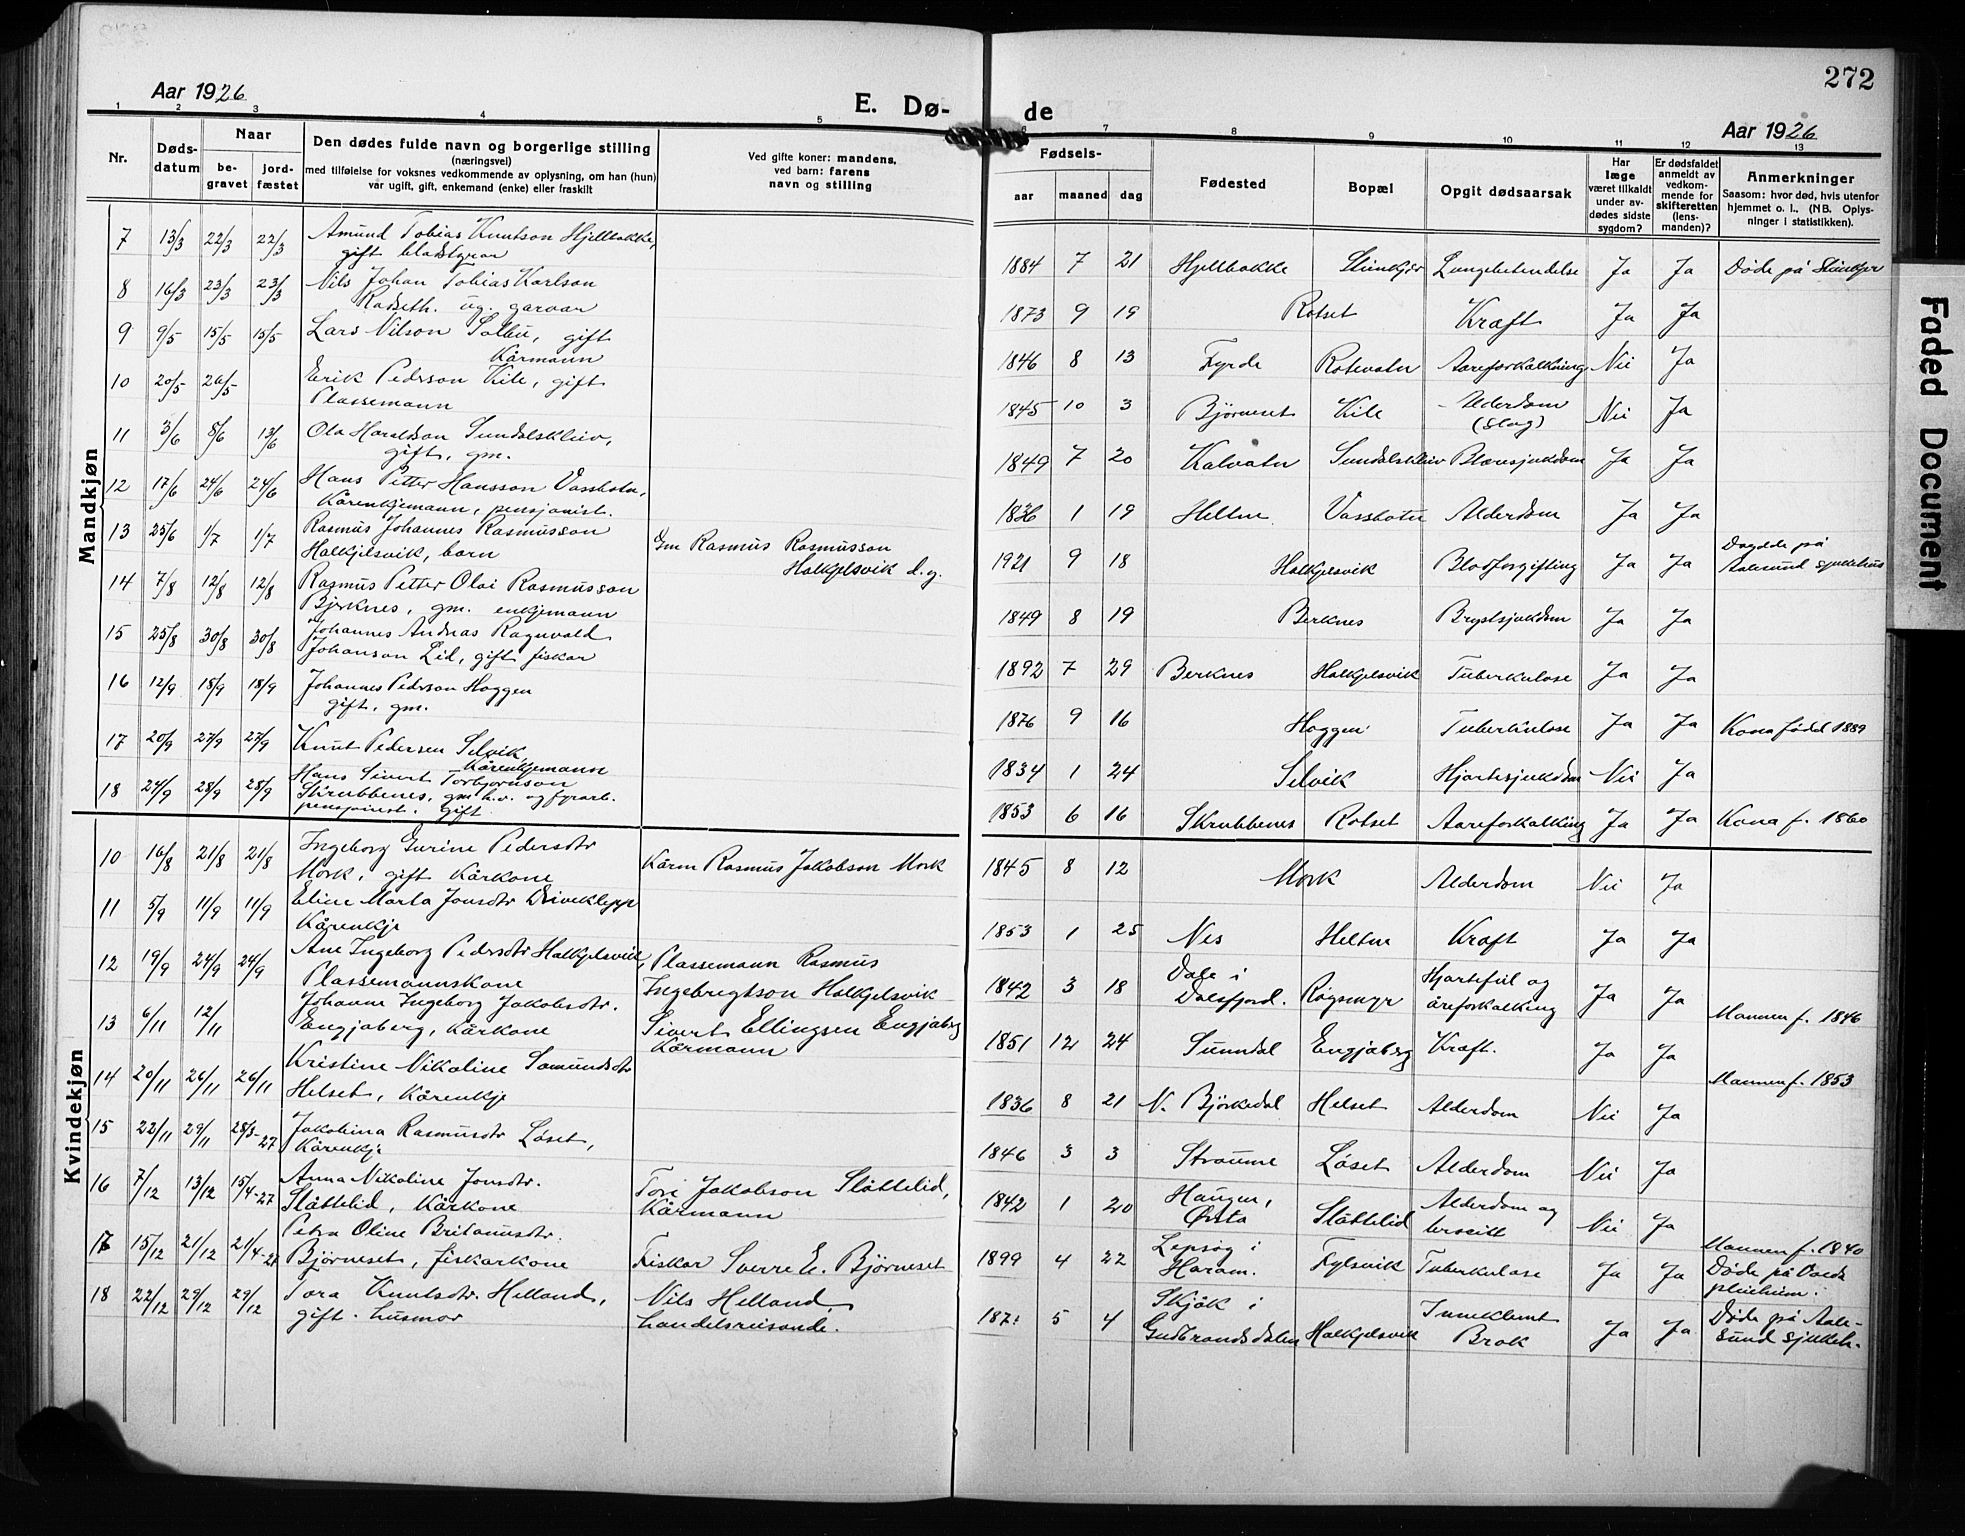 272
Aar 1926
E. Dø- de
Aar 1926
1 2 3 4 5 6 7 8 9 10 11 12 13
Nr.
Døds-
datum
Naar
be-
gravet
jord-
fæstet
Den dødes fulde navn og borgerlige stilling
(næringsvei)
med tilføielse for voksnes vedkommende av oplysning, om han (hun)
var ugift, gift, enkemand (enke) eller fraskilt
Ved gifte koner: mandens,
ved barn: farens
navn og stilling
Fødsels-
aar maaned dag
Fødested
Bopæl
Opgit dødsaarsak
Har
læge
været tilkaldt
under av-
dødes sidste
sygdom?
Er dødsfaldet
anmeldt av
vedkom-
mende for
skifteretten
(lens-
manden)?
Anmerkninger
Saasom: hvor død, hvis utenfor
hjemmet o. l., (NB. Oplys-
ninger i statistikken).
Mandkjøn
7 13/3 22/3 22/3 Amund Tobias Knutson Hjellbakke,
gift
1884 7 21 Hjellbakke Lungebetendelse Ja Ja Døde på
8 16/3 23/3 23/3 Nils Johan Tobias Karlson
Rodseth. ug. garvar
1873 9 19 Rotset Kræft Ja Ja
9 9/5 15/5 15/5 Lars Nilson Solbu, gift
Kårmann
1846 8 13 Fyrde Rotevatn Aareforkalkning Nei Ja
10 20/5 26/5 Erik Pedrson Kile, gift
Plassemann
1845 10 3 Bjørneset Kile Alderdom
(slag) Nei Ja
11 3/6 8/6 13/6 Ola Haraldson Sundalskleiv,
gift, gm.
1849 7 20 Kalvatn Sundalskleiv Blæresjukdom Ja Ja
12 17/6 24/6 24/6 Hans Petter Hansson Vassbotn,
Kårenkjemann, pensjonist.
1836 1 19 Heltne Vassbotn Alderdom Ja Ja
13 25/6 1/7 1/7 Rasmus Johannes Rasmusson
Halkjelsvik, barn
Gm Rasmus Rasmusson
Halkjelsvik d.y.
1921 9 18 Halkjelsvik Blodforgifting Ja Ja Døydde på
Aalesund sjukehus
14 7/8 12/8 12/8 Rasmus Petter Olai Rasmusson
Bjerknes, gm. enkjemann
1849 8 19 Berknes Brystsjukdom Ja Ja
15 25/8 30/8 30/8 Johannes Andreas Ragnvald
Johanson Lid, gift, fiskar
1892 7 29 Berknes Halkjelsvik Tuberkulose Ja Ja
16 12/9 18/9 18/9 Johannes Pedrson Haggen
gift, gm.
1876 9 16 Haggen Tuberkulose Ja Ja Kona fødd 1889
17 20/9 27/9 27/9 Knut Pedersen Selvik
Kårenkjemann
1834 1 24 Selvik Hjartesjukdom Nei Ja
18 24/9 28/9 28/9 Hans Sivert Torbjørnson
Skrubbenes, gm. h.v. og fyrarb.
pensjonist. gift
1853 6 16 Skrubbenes Rotset Aareforkalking Ja Ja Kona f. 1860
Kvindekjøn
10 16/8 21/8 21/8 Ingeborg Gurine Pedersdtr
Mork, gift Kårkone
Kårm Rasmus Jakobson Mork
1845 8 12 Mork Alderdom Nei Ja
11 5/9 11/9 11/9 Eline Marta Jonsdtr Driveklepp
Kårenkje
1853 1 25 Nes Heltne Kræft Ja Ja
12 19/9 24/9 24/9 Ane Ingeborg Pedersdtr Halkjelsvik,
Plassemannskone
Plassemann Rasmus
Ingebregtson Halkjelsvik
1842 3 18 Dale i
Dalsfjord. Røysmyr Hjartefeil og
åreforkalking Ja Ja Mannen f. 1846
13 6/11 12/11 Johanne Ingeborg Jakobsdtr.
Engjaberg, Kårkone
Sivert Ellingsen Engjaberg
Kårmann
1851 12 24 Sunndal Engjaberg Kræft. Ja Ja Mannen f. 1853
14 20/11 26/11 26/11 Kristine Nikoline Samundsdtr
Helset, Kårenkje
1836 8 21 N. Bjørkedal Helset Alderdom Nei Ja
15 22/11 29/11 28/3-27 Jakobina Rasmusdtr Løset,
Kårenkje
1846 3 3 Straume Løset Alderdom Nei Ja
16 7/12 13/12 15/4-27 Anna Nikoline Jonsdtr.
Slåttelid, Kårkone
Tore Jakobson Slåttelid,
Kårmann
1842 1 20 Haugen,
Ørsta Slåttelid Alderdom og
Nei Ja Mannen f. 1840
17 15/12 21/12 21/4-27 Petra Oline Britanusdtr.
Bjørneset, fiskarkone
Fiskar Sverre E. Bjørneset
1899 4 22 Lepsøy i
Haram. Fylsvik Tuberkulose Ja Ja Døde på Volda
pleieheim.
18 22/12 29/12 29/12 Tora Knutsdtr. Helland,
gift. husmor
Nils Helland,
handelsreisande.
187 5 4 Skjåk i
Gudbrandsdalen Halkjelsvik Inneklemt
Brok Ja Ja Døde på Aale-
sund sjukeh.
Faded Document